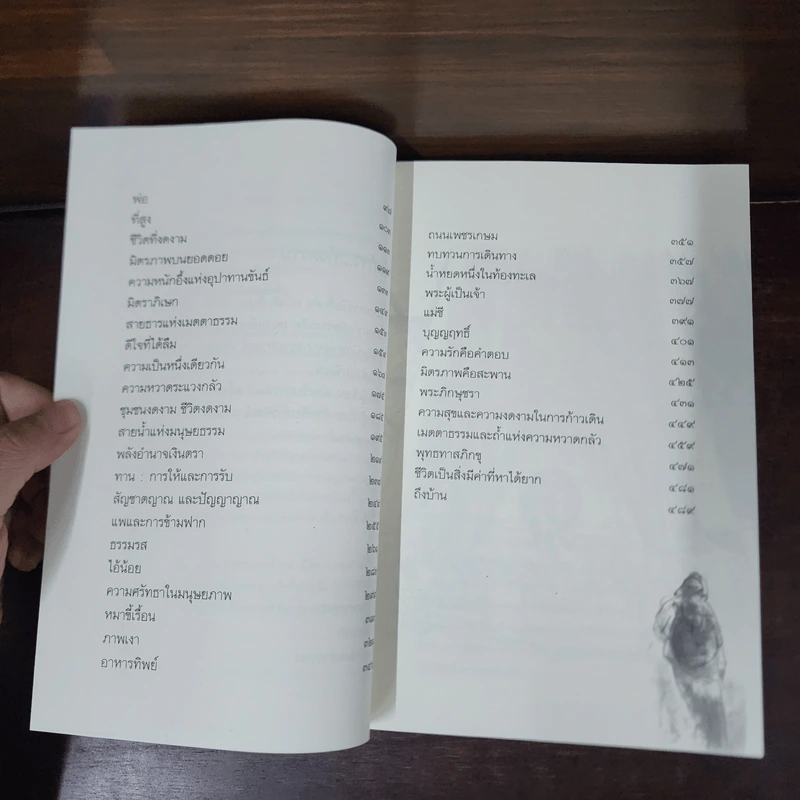 พ่อ
ที่สูง
ชีวิตที่งดงาม
มิตรภาพบนยอดดอย
ความหนักอึ้งแห่งอุปาทานขันธ์
มิตราภิเษก
สายธารแห่งเมตตาธรรม
ดีใจที่ได้ลืม
ความเป็นหนึ่งเดียวกัน
ความหวาดระแวงกลัว
ชุมชนงดงาม ชีวิตงดงาม
สายน้ำแห่งมนุษยธรรม
พลังอำนาจเงินตรา
ทาน : การให้และการรับ
สัญชาตญาณ และปัญญาญาณ
แพและการข้ามฟาก
ธรรมรส
ไอ้น้อย
ความศรัทธาในมนุษยภาพ
หมาขี้เรื้อน
ภาพเงา
อาหารทิพย์
ถนนเพชรเกษม ๓๕๑
ทบทวนการเดินทาง ๓๕๗
น้ำหยดหนึ่งในท้องทะเล ๓๖๗
พระผู้เป็นเจ้า ๓๗๗
แม่ชี ๓๙๑
บุญญฤทธิ์ ๔๐๑
ความรักคือคำตอบ ๔๑๓
มิตรภาพคือสะพาน ๔๒๕
พระภิกษุชรา ๔๓๑
ความสุขและความงดงามในการก้าวเดิน ๔๔๙
เมตตาธรรมและถ้ำแห่งความหวาดกลัว ๔๕๙
พุทธทาสภิกขุ ๔๗๑
ชีวิตเป็นสิ่งมีค่าที่หาได้ยาก ๔๘๑
ถึงบ้าน ๔๘๙